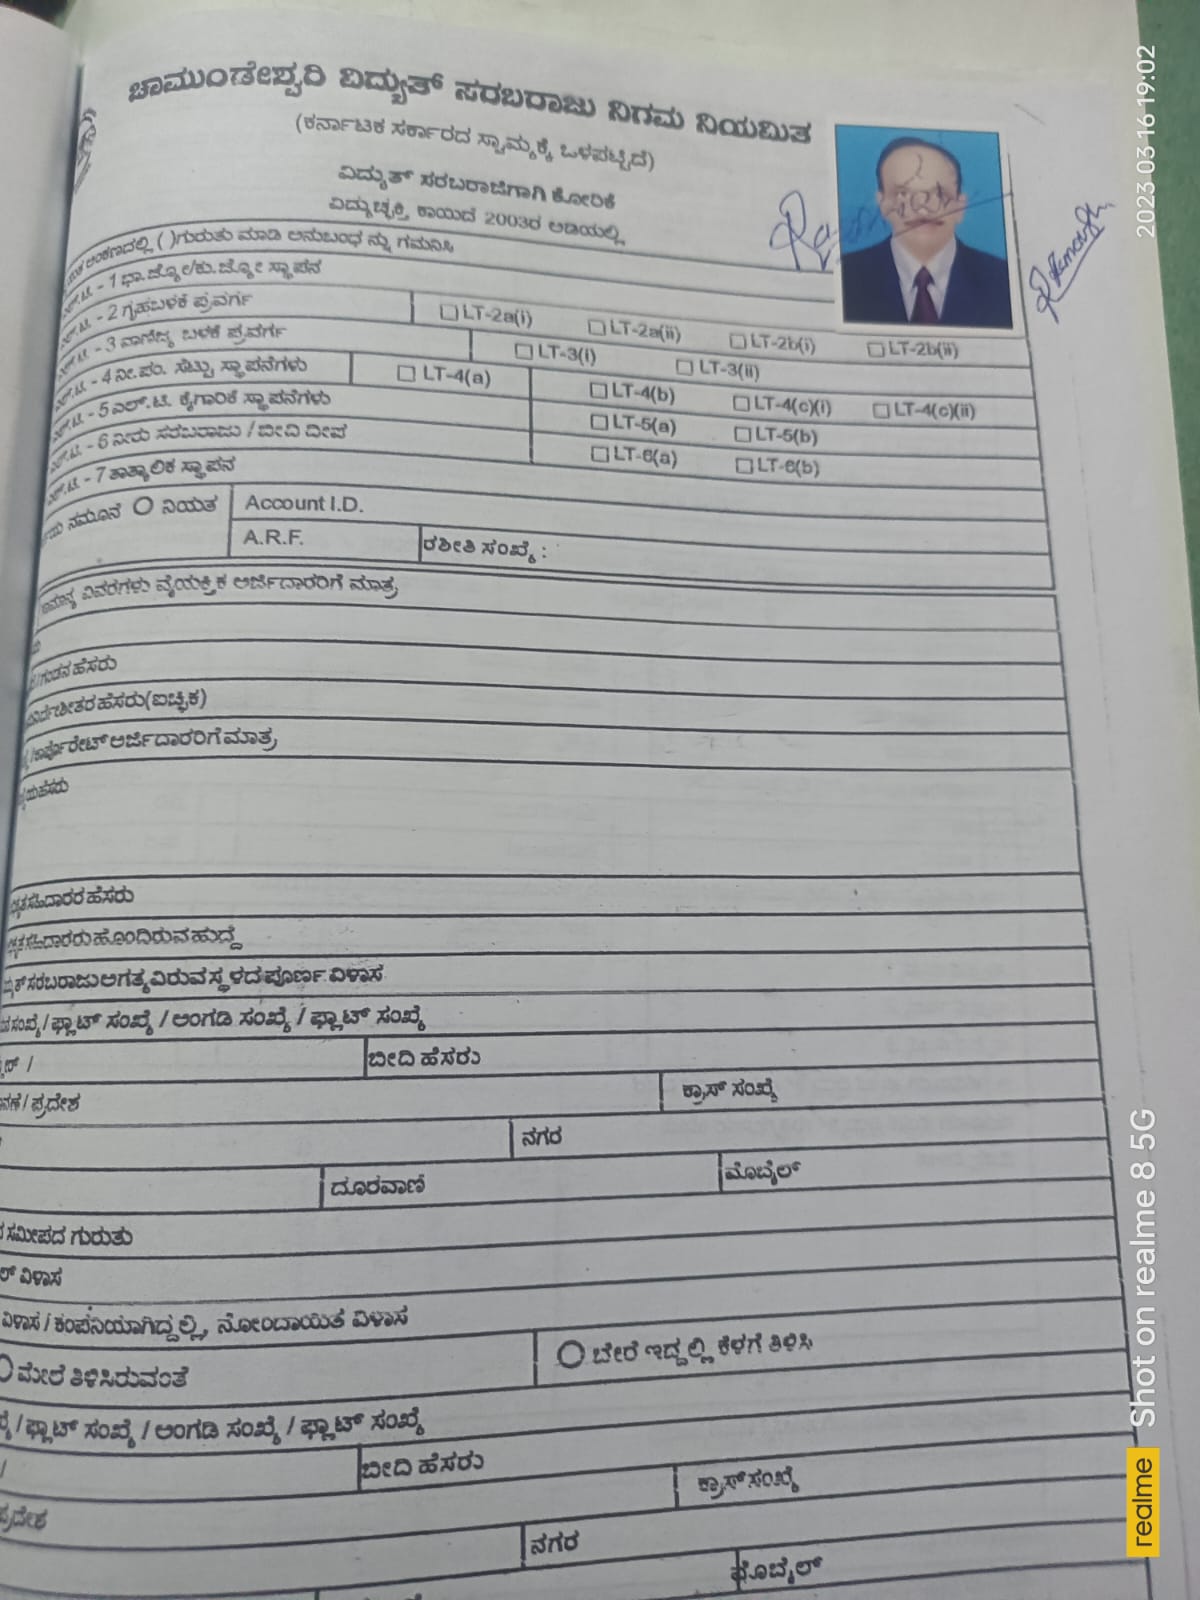 ಚಾಮುಂಡೇಶ್ವರಿ ವಿದ್ಯುತ್ ಸರಬರಾಜು ನಿಗಮ ನಿಯಮಿತ
(ಕರ್ನಾಟಕ ಸರ್ಕಾರದ ಸ್ವಾಮ್ಯಕ್ಕೆ ಒಳಪಟ್ಟಿದೆ)
ವಿದ್ಯುತ್ ಸರಬರಾಜಿಗಾಗಿ ಕೋರಿಕೆ
ವಿದ್ಯುಚ್ಛಕ್ತಿ ಕಾಯಿದೆ 2003ರ ಅಡಿಯಲ್ಲಿ
ಅಂಕಣದಲ್ಲಿ ( )ಗುರುತು ಮಾಡಿ ಅನುಬಂಧ ನ್ನು ಗಮನಿಸಿ
- 1 ಭಾ.ಜ್ಯೋ/ಕು.ಜ್ಯೋ ಸ್ಥಾಪನ
- 2 ಗೃಹಬಳಕೆ ಪ್ರವರ್ಗ LT-2a(i) LT-2a(ii) LT-2b(i) LT-2b(ii)
- 3 ವಾಣಿಜ್ಯ ಬಳಕೆ ಪ್ರವರ್ಗ LT-3(i) LT-3(ii)
- 4 ನೀ.ಪಂ. ಸೆಟ್ಟು ಸ್ಥಾಪನೆಗಳು LT-4(a) LT-4(b) LT-4(c)(i) LT-4(c)(ii)
- 5 ಎಲ್.ಟಿ. ಕೈಗಾರಿಕೆ ಸ್ಥಾಪನೆಗಳು LT-5(a) LT-5(b)
- 6 ನೀರು ಸರಬರಾಜು / ಬೀದಿ ದೀಪ LT-6(a) LT-6(b)
- 7 ತಾತ್ಕಾಲಿಕ ಸ್ಥಾಪನ
ನಮೂನೆ ನಿಯತ Account I.D.
A.R.F. ರಶೀತಿ ಸಂಖ್ಯೆ :
ವಿವರಗಳು ವೈಯಕ್ತಿಕ ಅರ್ಜಿದಾರರಿಗೆ ಮಾತ್ರ
/ಗಂಡನ ಹೆಸರು
ಹೆಸರು(ಐಚ್ಛಿಕ)
/ಕಾರ್ಪೊರೇಟ್ ಅರ್ಜಿದಾರರಿಗೆ ಮಾತ್ರ
ಹೆಸರು
ಹೆಸರು
ಹೊಂದಿರುವ ಹುದ್ದೆ
ಸರಬರಾಜು ಅಗತ್ಯವಿರುವ ಸ್ಥಳದ ಪೂರ್ಣ ವಿಳಾಸ
ಸಂಖ್ಯೆ / ಫ್ಲಾಟ್ ಸಂಖ್ಯೆ / ಅಂಗಡಿ ಸಂಖ್ಯೆ / ಫ್ಲಾಟ್ ಸಂಖ್ಯೆ
/ ಬೀದಿ ಹೆಸರು
/ ಪ್ರದೇಶ ಕ್ರಾಸ್ ಸಂಖ್ಯೆ
ನಗರ
ದೂರವಾಣಿ ಮೊಬೈಲ್
ಸಮೀಪದ ಗುರುತು
ವಿಳಾಸ
ವಿಳಾಸ / ಕಂಪನಿಯಾಗಿದ್ದಲ್ಲಿ, ನೋಂದಾಯಿತ ವಿಳಾಸ
ಮೇಲೆ ತಿಳಿಸಿರುವಂತೆ ಬೇರೆ ಇದ್ದಲ್ಲಿ ಕೆಳಗೆ ತಿಳಿಸಿ
/ ಫ್ಲಾಟ್ ಸಂಖ್ಯೆ / ಅಂಗಡಿ ಸಂಖ್ಯೆ / ಫ್ಲಾಟ್ ಸಂಖ್ಯೆ
/ ಬೀದಿ ಹೆಸರು
ಪ್ರದೇಶ ಕ್ರಾಸ್ ಸಂಖ್ಯೆ
ನಗರ
ಮೊಬೈಲ್
2023.03.16 19:02
realme Shot on realme 8 5G